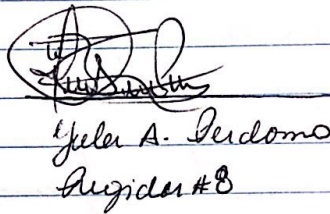 Yuler A. Perdomo
Regidor #8